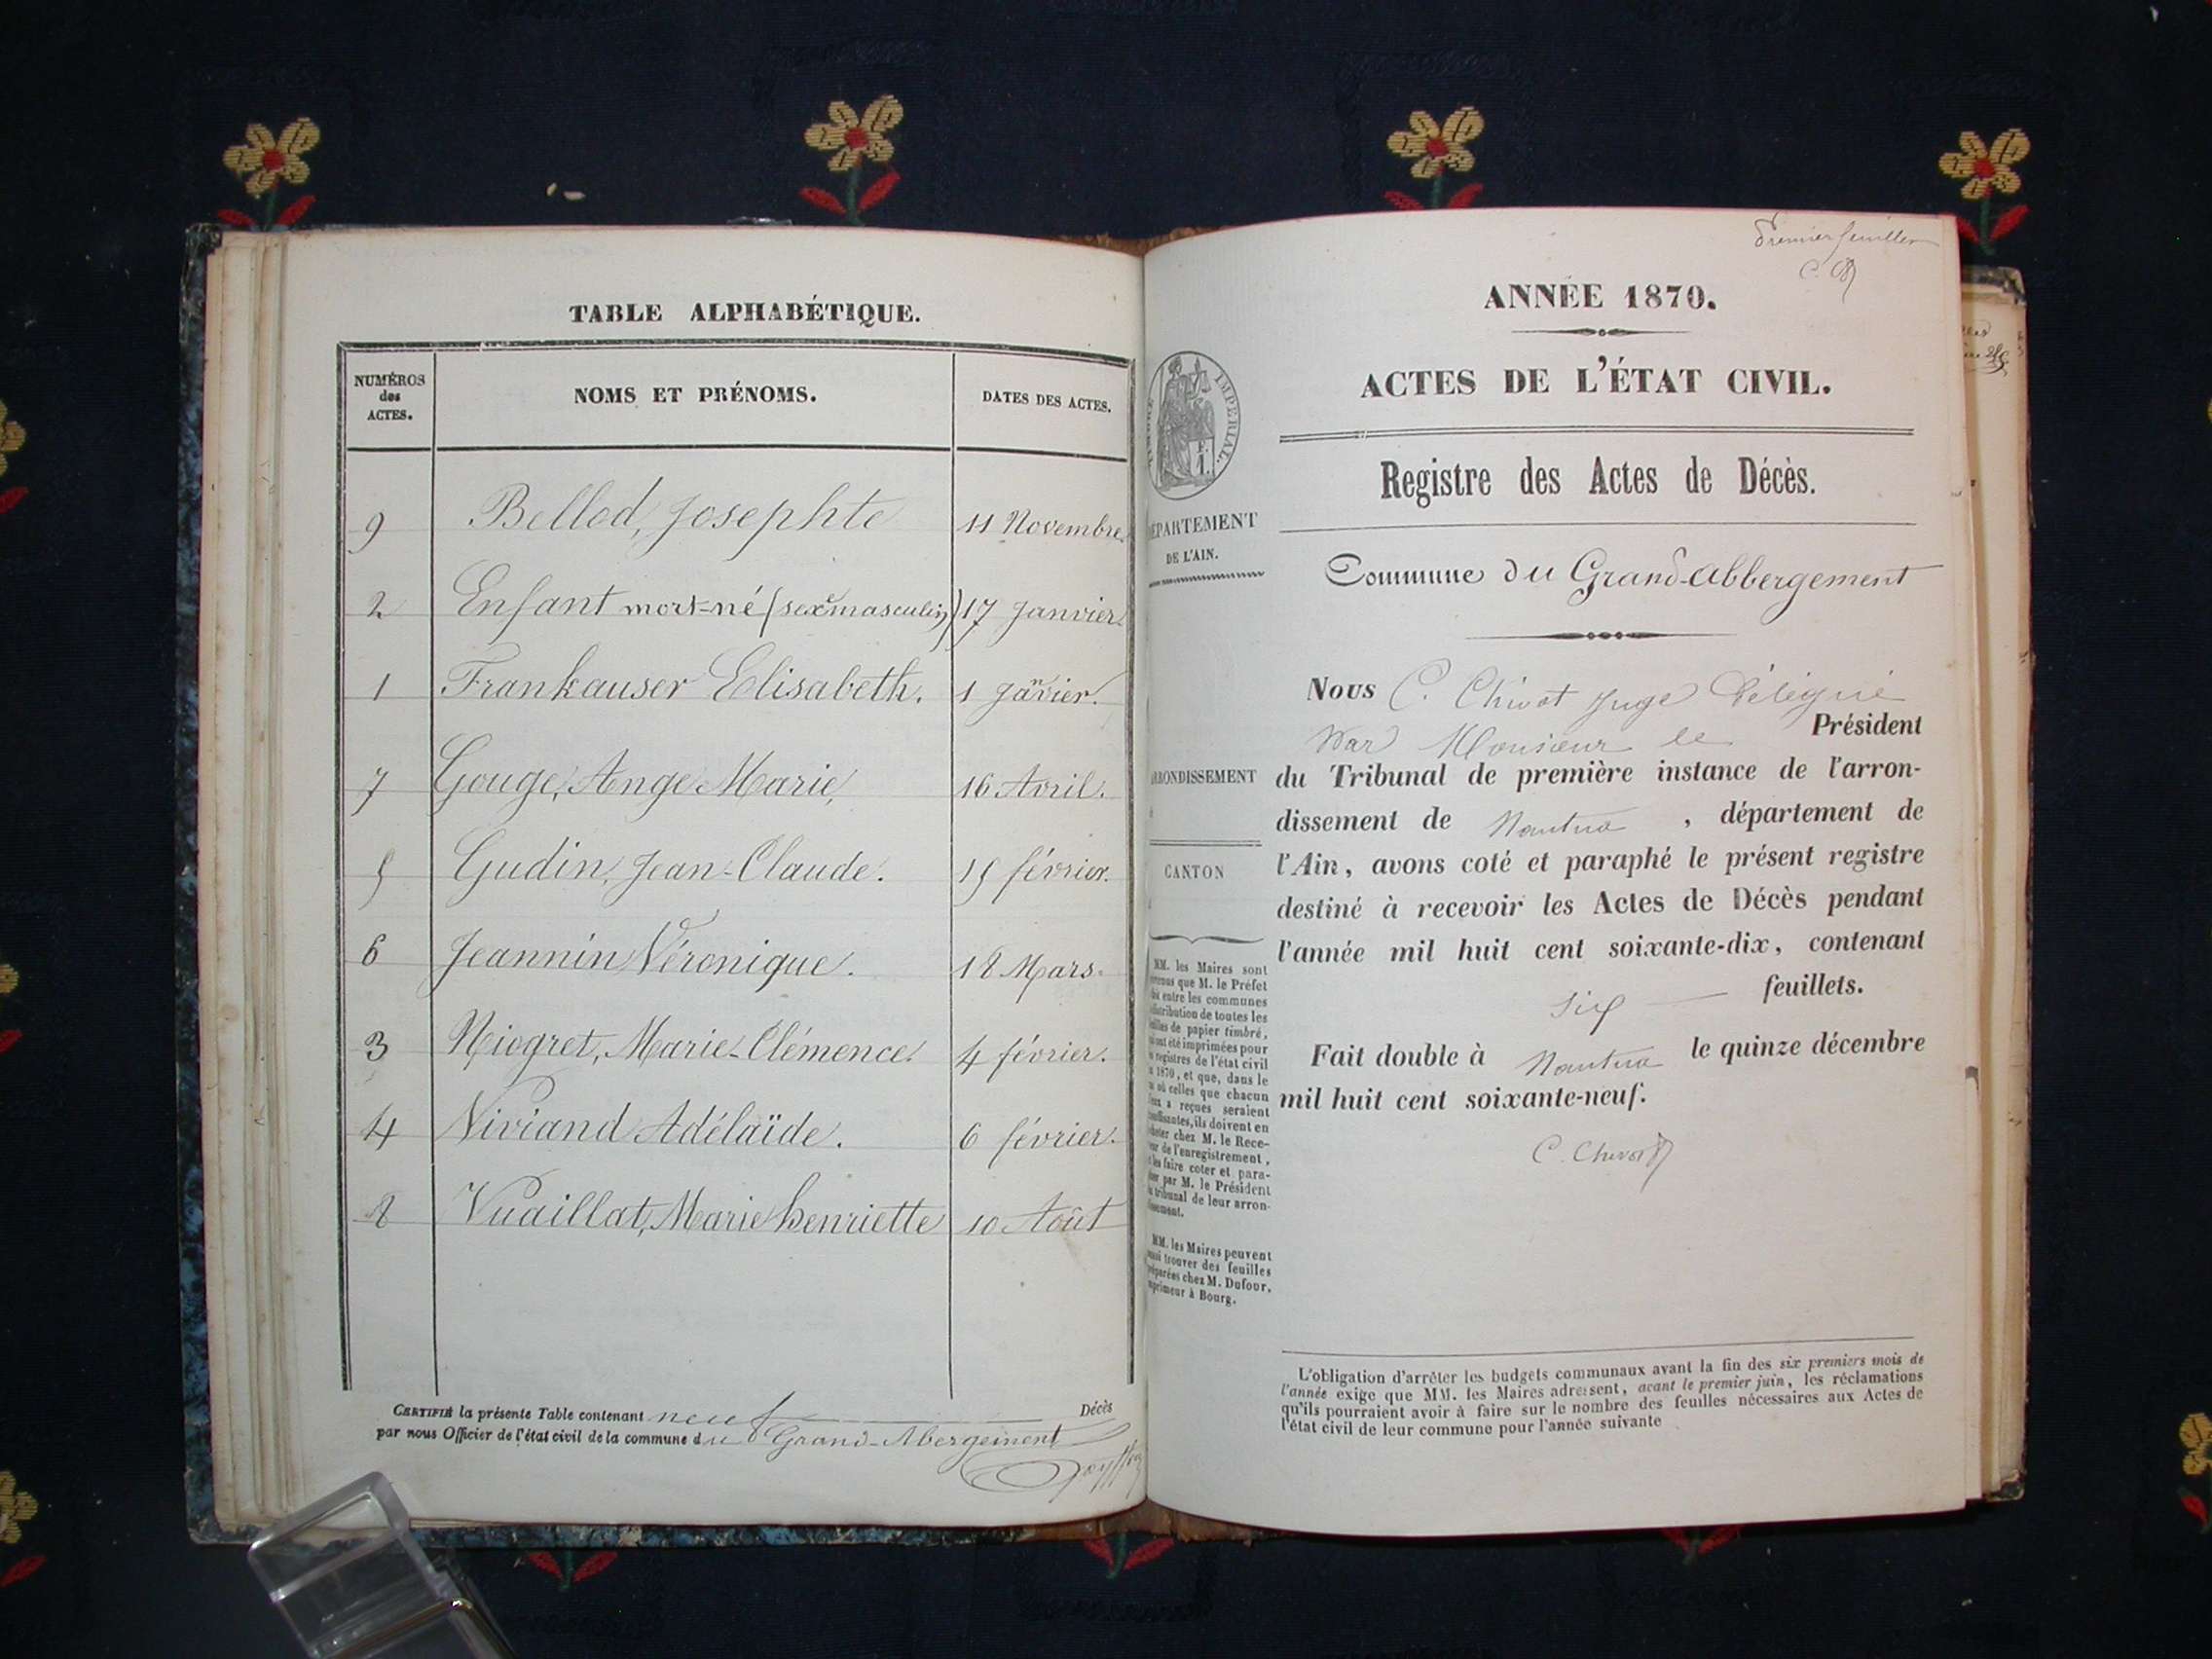 TABLE ALPHABÉTIQUE.
NUMÉROS
des
ACTES.
NOMS ET PRÉNOMS.
DATES DES ACTES.
9 Bellod, Josephte 11 Novembre
2 Enfant mort-né (sexe masculin) 17 Janvier
1 Frankauser Elisabeth. 1 Janvier.
7 Gouge, Ange Marie, 16 Avril.
5 Gudin, Jean-Claude. 15 février.
6 Jeannin Véronique. 18 Mars.
3 Niogret, Marie-Clémence. 4 février.
4 Niviand Adélaïde. 6 février.
8 Vuaillat, Marie henriette 10 Août
CERTIFIÉ la présente Table contenant neuf Décès
par nous Officier de l'état civil de la commune du Grand-Abergement
Premier feuillet
ANNÉE 1870.
ACTES DE L'ÉTAT CIVIL.
Registre des Actes de Décès.
TIMBRE IMPÉRIAL.
DÉPARTEMENT
DE L'AIN.
Commune du Grand-Abbergement
Nous C. Chivot Juge Délégué
par Monsieur le Président
ARRONDISSEMENT
du Tribunal de première instance de l'arron-
dissement de Nantua, département de
l'Ain, avons coté et paraphé le présent registre
CANTON
destiné à recevoir les Actes de Décès pendant
l'année mil huit cent soixante-dix, contenant
six feuillets.
Fait double à Nantua le quinze décembre
mil huit cent soixante-neuf.
MM. les Maires sont
que M. le Préfet
entre les communes
distribution de toutes les
feuilles de papier timbré,
ont été imprimées pour
registres de l'état civil
1870, et que, dans le
où celles que chacun
a reçues seraient
insuffisantes, ils doivent en
acheter chez M. le Rece-
de l'enregistrement,
les faire coter et para-
par M. le Président
tribunal de leur arron-
dissement.
MM. les Maires peuvent
aussi trouver des feuilles
préparées chez M. Dufour,
imprimeur à Bourg.
L'obligation d'arrêter les budgets communaux avant la fin des six premiers mois de
l'année exige que MM. les Maires adressent, avant le premier juin, les réclamations
qu'ils pourraient avoir à faire sur le nombre des feuilles nécessaires aux Actes de
l'état civil de leur commune pour l'année suivante